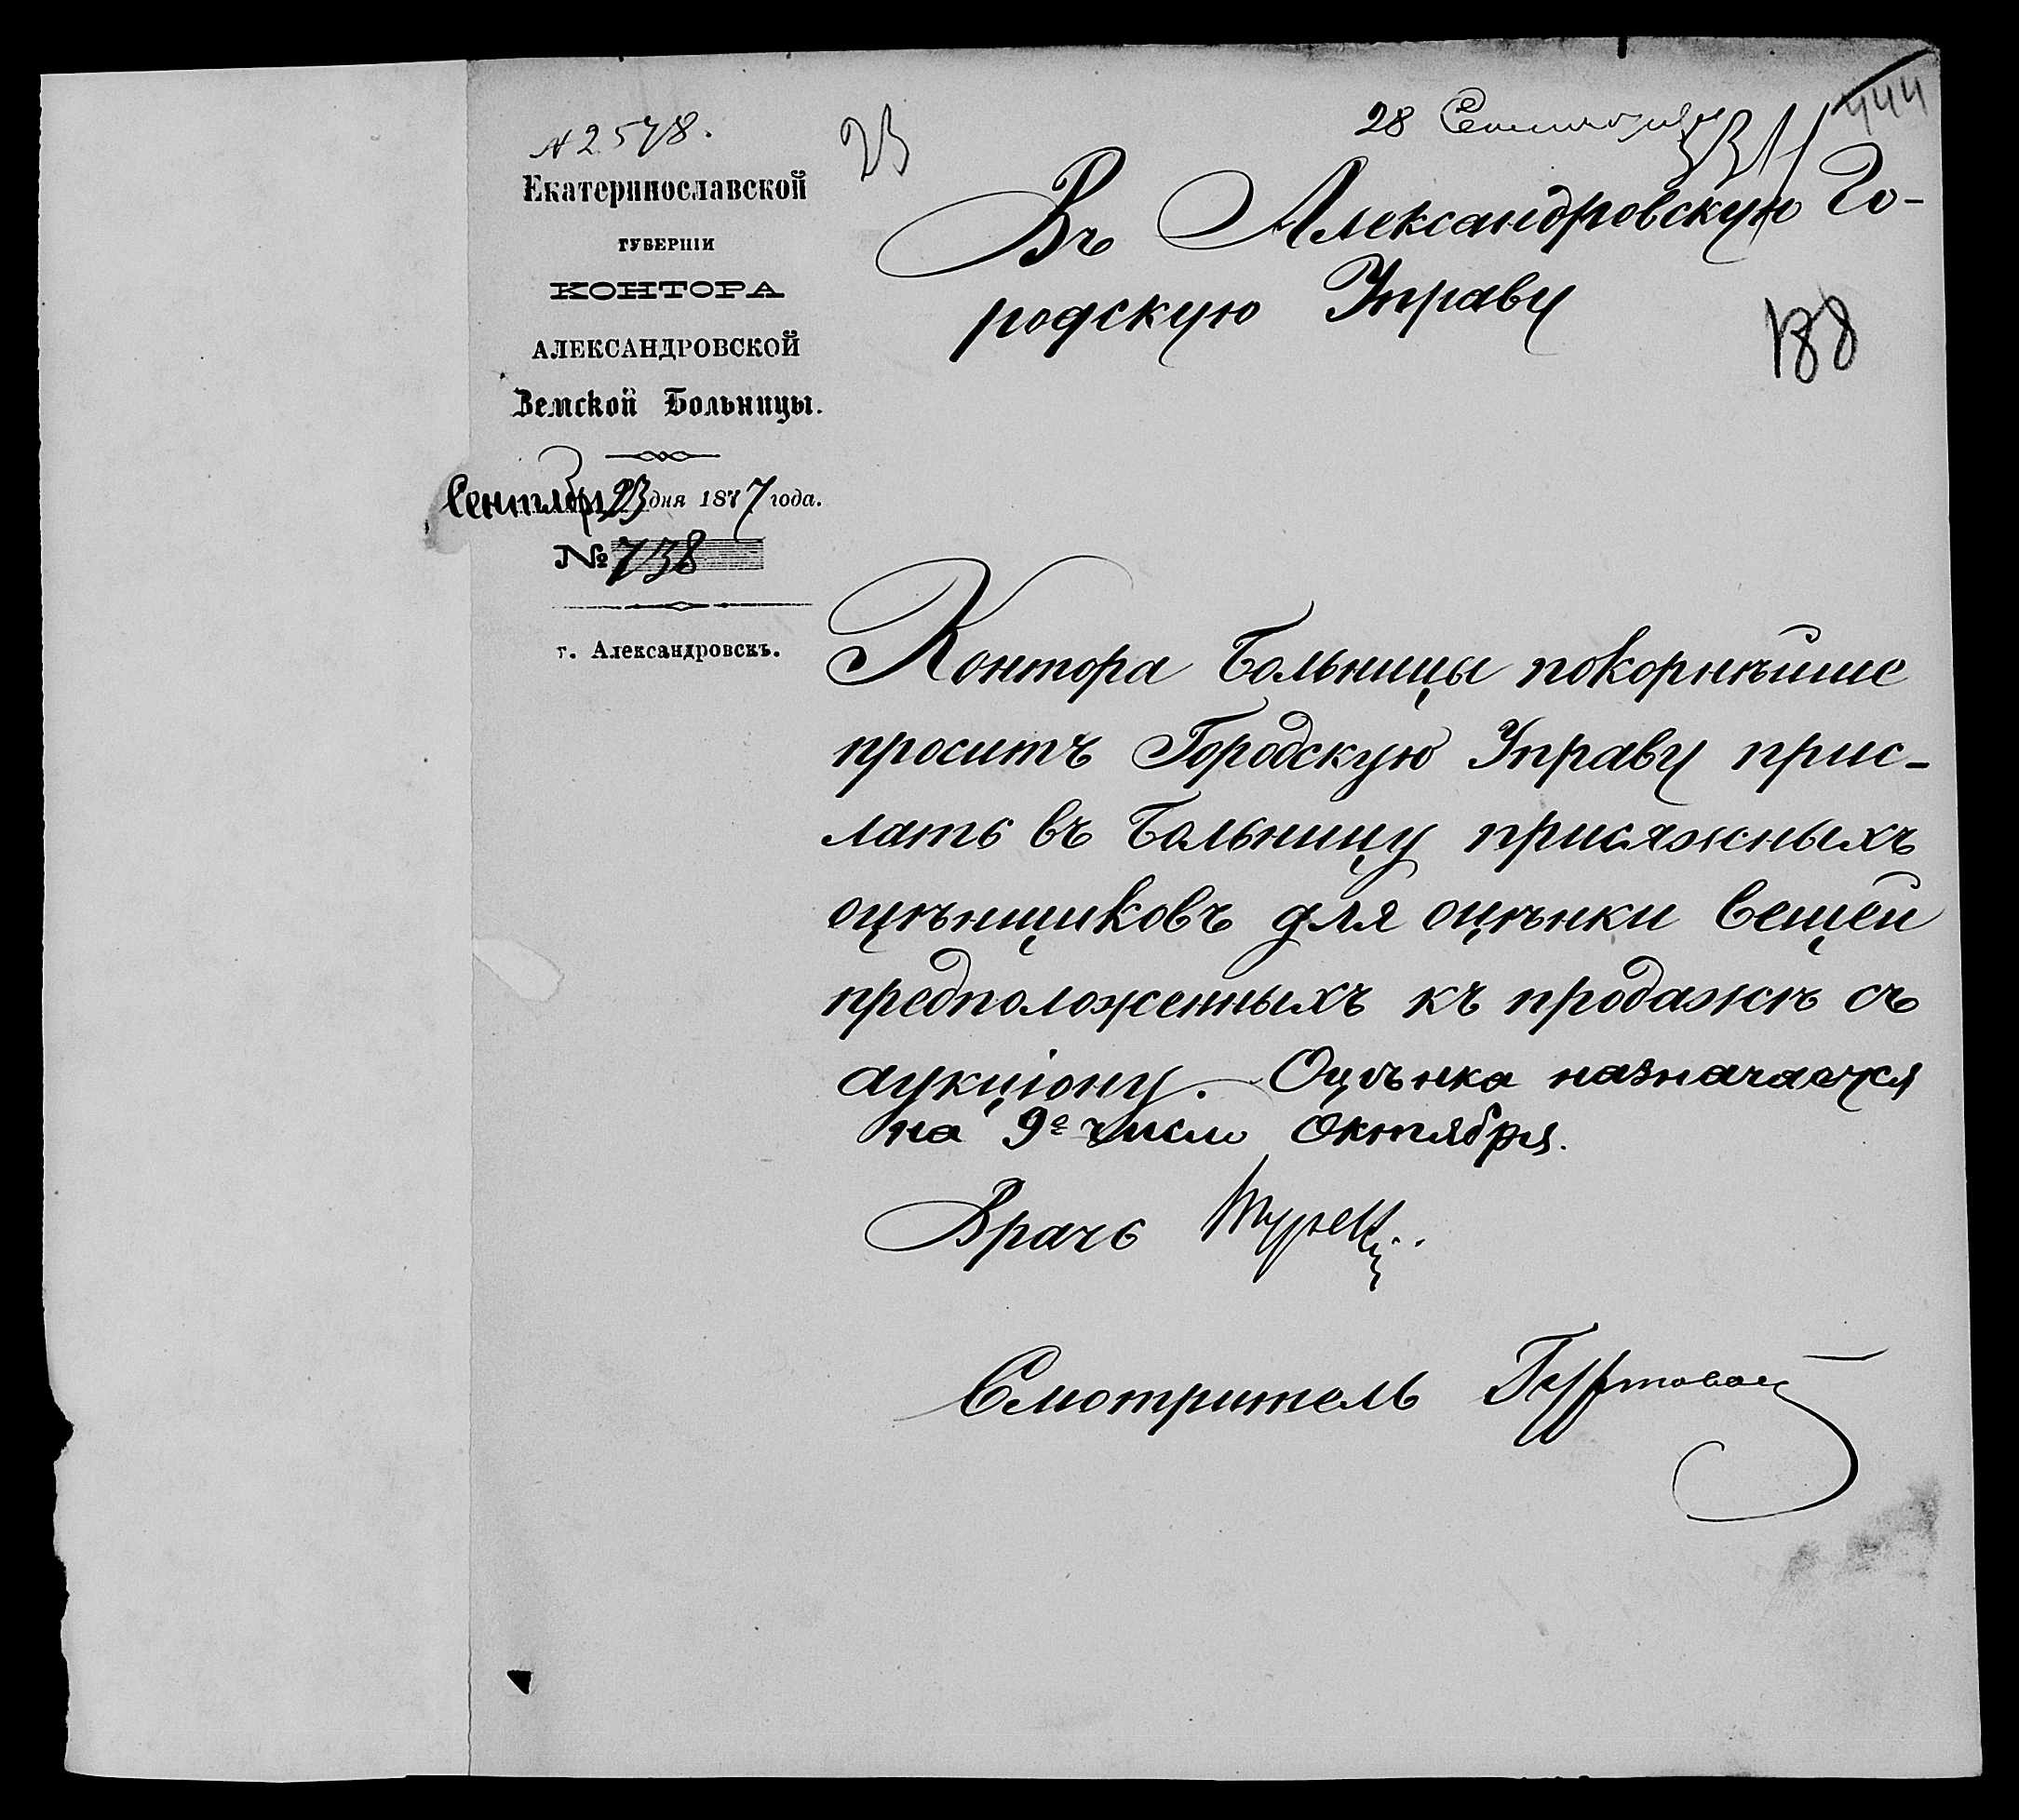 № 2578.
Екатеринославской
ГУБЕРНІИ
КОНТОРА
АЛЕКСАНДРОВСКОЙ
Земской Больницы.
Сентября 23 дня 1877 года.
№ 738
г. Александровскъ.
23
28 Сентября
444
Въ Александровскую Го-
родскую Управу
188
Контора Больницы покорнѣйше
проситъ Городскую Управу прис-
лать въ Больницу присяжныхъ
оцѣнщиковъ для оцѣнки вещей
предположенныхъ къ продажѣ съ
аукціону. Оцѣнка назначается
на 9е число Октября.
Врачъ
Смотритель